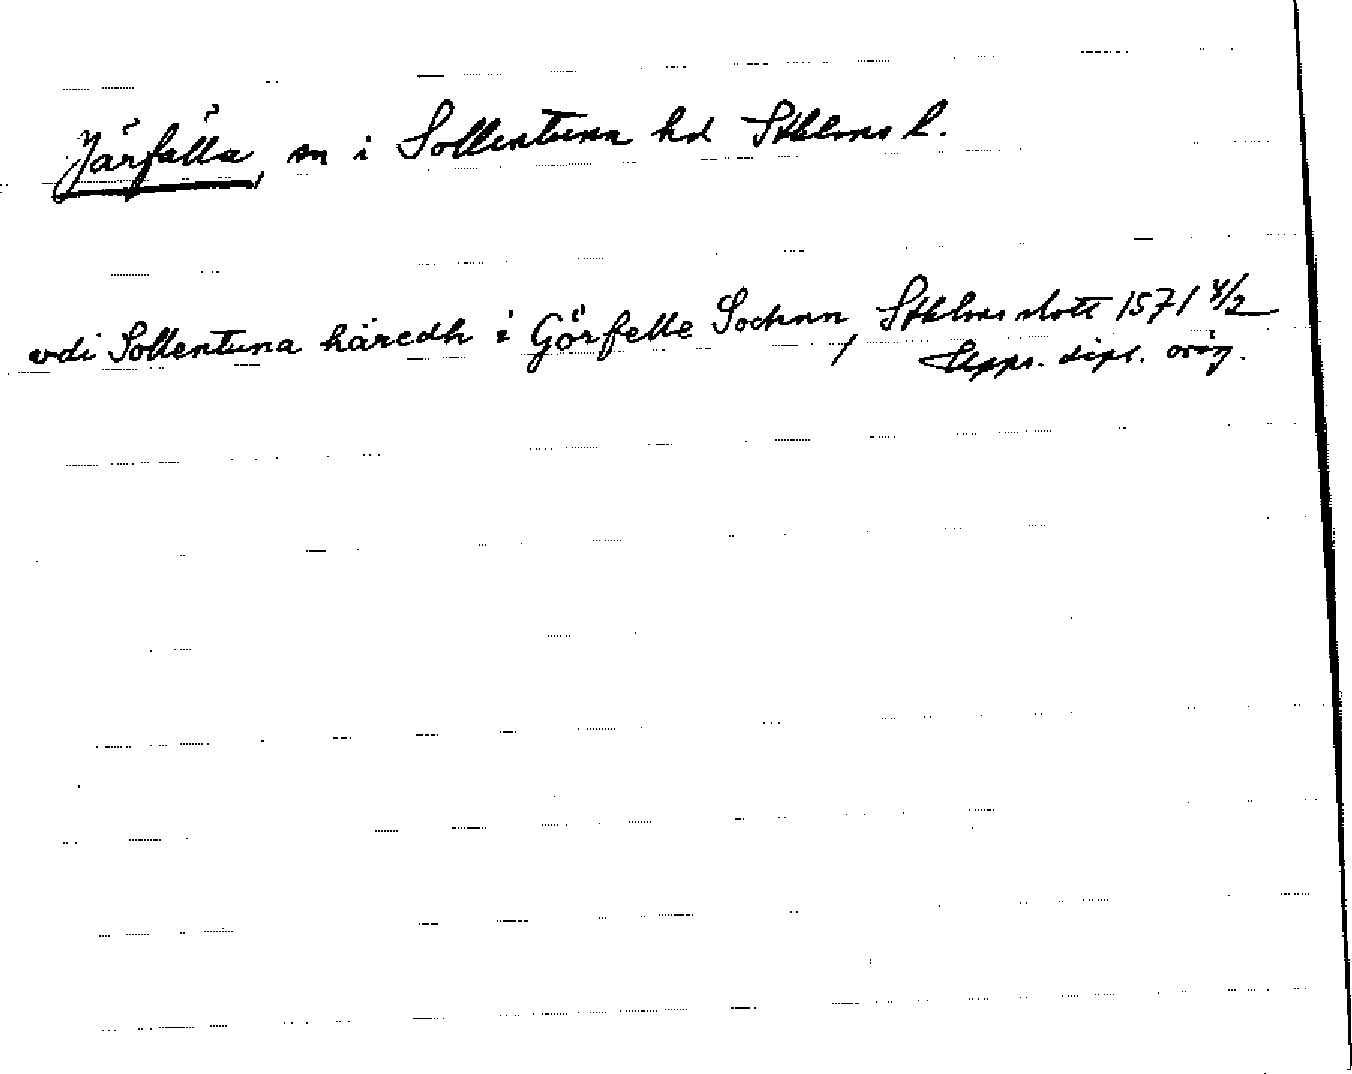 Järfälla, sn i Sollentuna hd Sthlms l.
vdi Sollentuna häredh i Görfelle Sochnn, Sthlms slott 1571 4/2
Upps. dipl. orig.